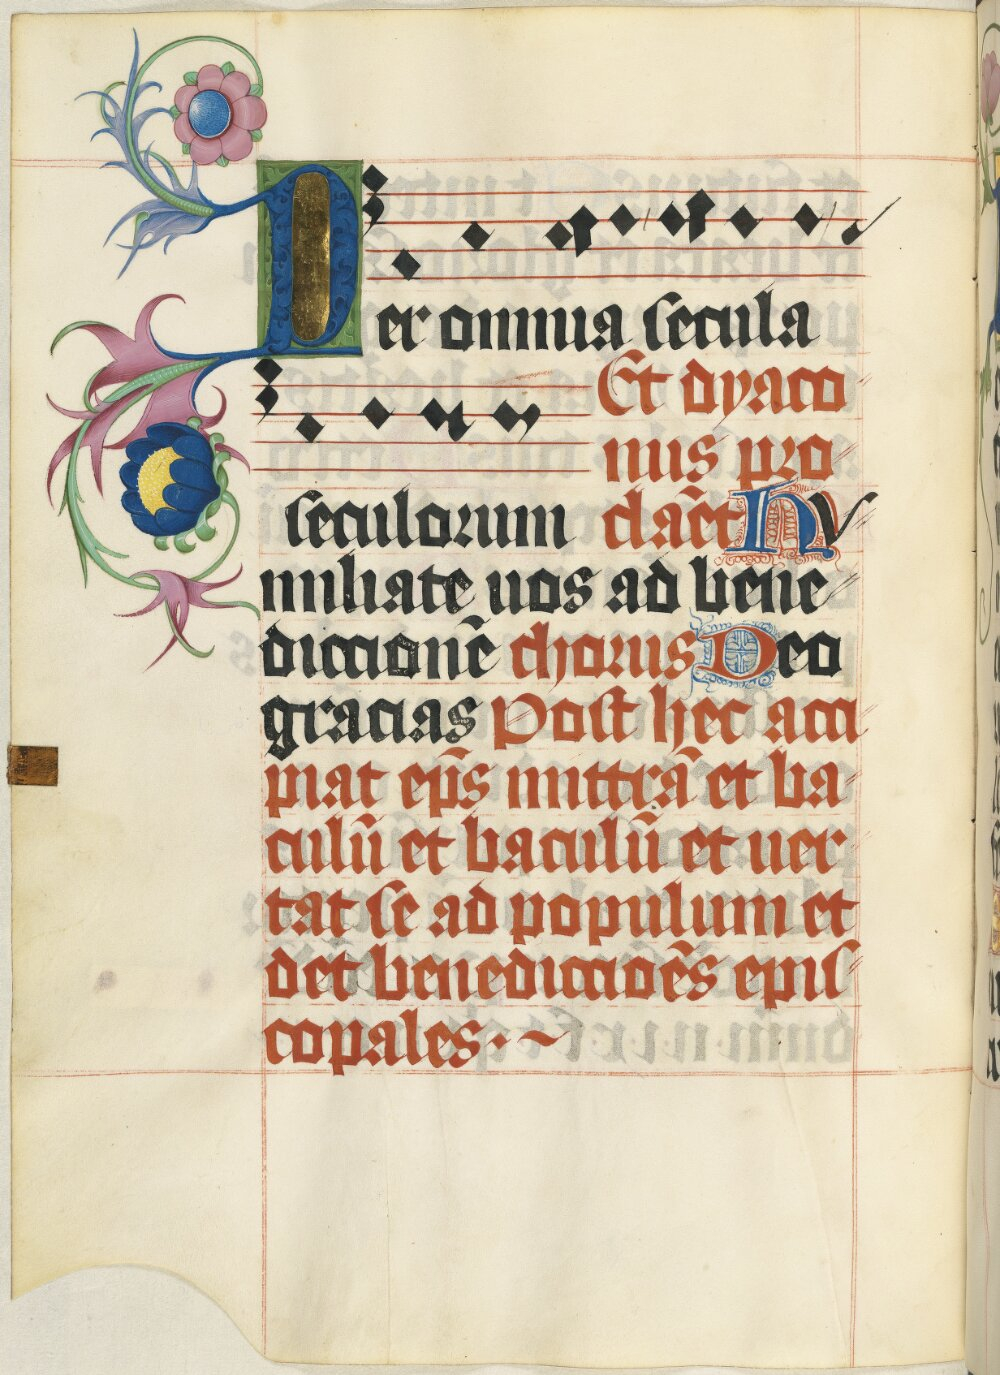 Per omnia secula
Et dyaco
nus pro
seculorum clam̄t Hv
miliate uos ad bene
diccionē chorus Deo
gracias Post hec acci
piat ep̄s mittrā et ba
culū et baculū et uer
tat se ad populum et
det benediccioēs epis
copales.